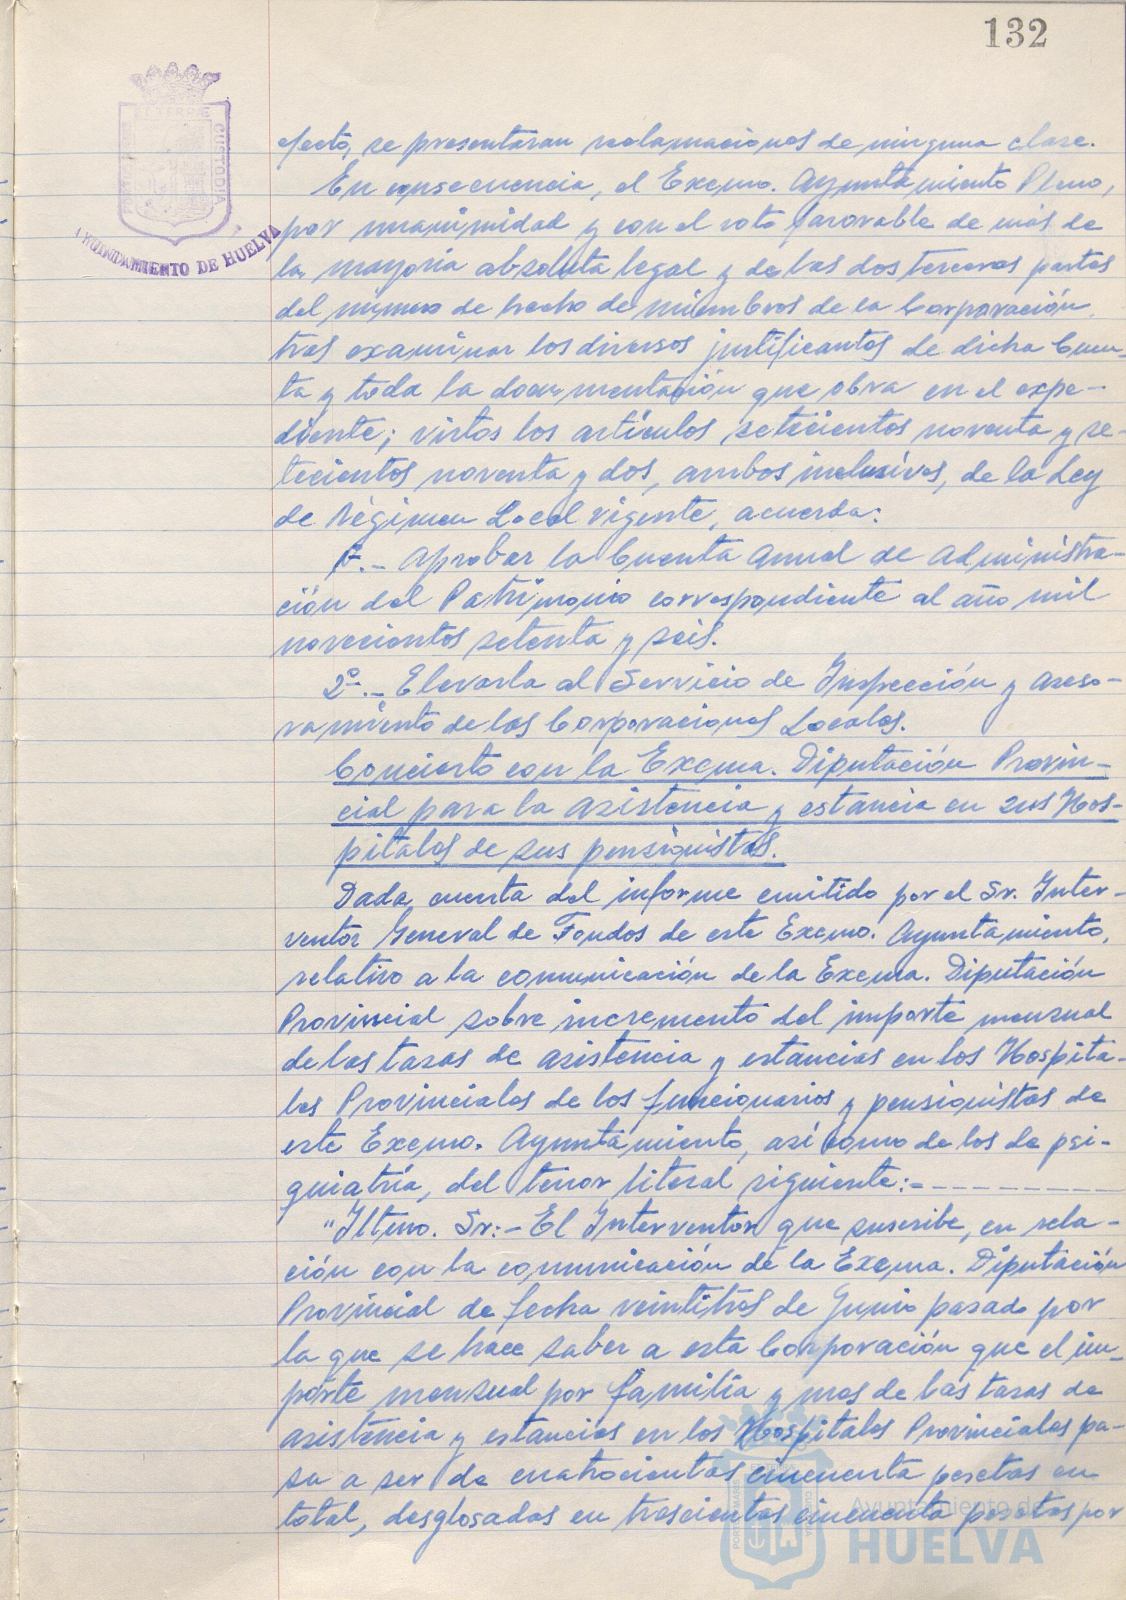 132
PORTUS MARIS ET TERRAE CUSTODIA
AYUNTAMIENTO DE HUELVA
efecto, se presentaran reclamaciones de ninguna clase.
En consecuencia, el Excmo. Ayuntamiento Pleno,
por unanimidad y con el voto favorable de más de
la mayoría absoluta legal y de las dos terceras partes
del número de hecho de miembros de la Corporación,
tras examinar los diversos justificantes de dicha Cuen-
ta y toda la documentación que obra en el expe-
diente; vistos los artículos setecientos noventa y se-
tecientos noventa y dos, ambos inclusives, de la Ley
de Régimen Local vigente, acuerda:
1º.- Aprobar la Cuenta Anual de Administra-
ción del Patrimonio correspondiente al año mil
novecientos setenta y seis.
2º.- Elevarla al Servicio de Inspección y Aseso-
ramiento de las Corporaciones Locales.
Concierto con la Excma. Diputación Provin-
cial para la asistencia y estancia en sus Hos-
pitales de sus pensionistas.
Dada cuenta del informe emitido por el Sr. Inter-
ventor General de Fondos de este Excmo. Ayuntamiento,
relativo a la comunicación de la Excma. Diputación
Provincial sobre incremento del importe mensual
de las tasas de asistencia y estancias en los Hospita-
les Provinciales de los funcionarios y pensionistas de
este Excmo. Ayuntamiento, así como de los de psi-
quiatría, del tenor literal siguiente:-
"Iltmo. Sr:- El Interventor que suscribe, en rela-
ción con la comunicación de la Excma. Diputación
Provincial de fecha veintitrés de Junio pasado por
la que se hace saber a esta Corporación que el im-
porte mensual por familia y mes de las tasas de
asistencia y estancias en los Hospitales Provinciales pa-
sa a ser de cuatrocientas cincuenta pesetas en
total, desglosadas en trescientas cincuenta pesetas por
Ayuntamiento de
HUELVA